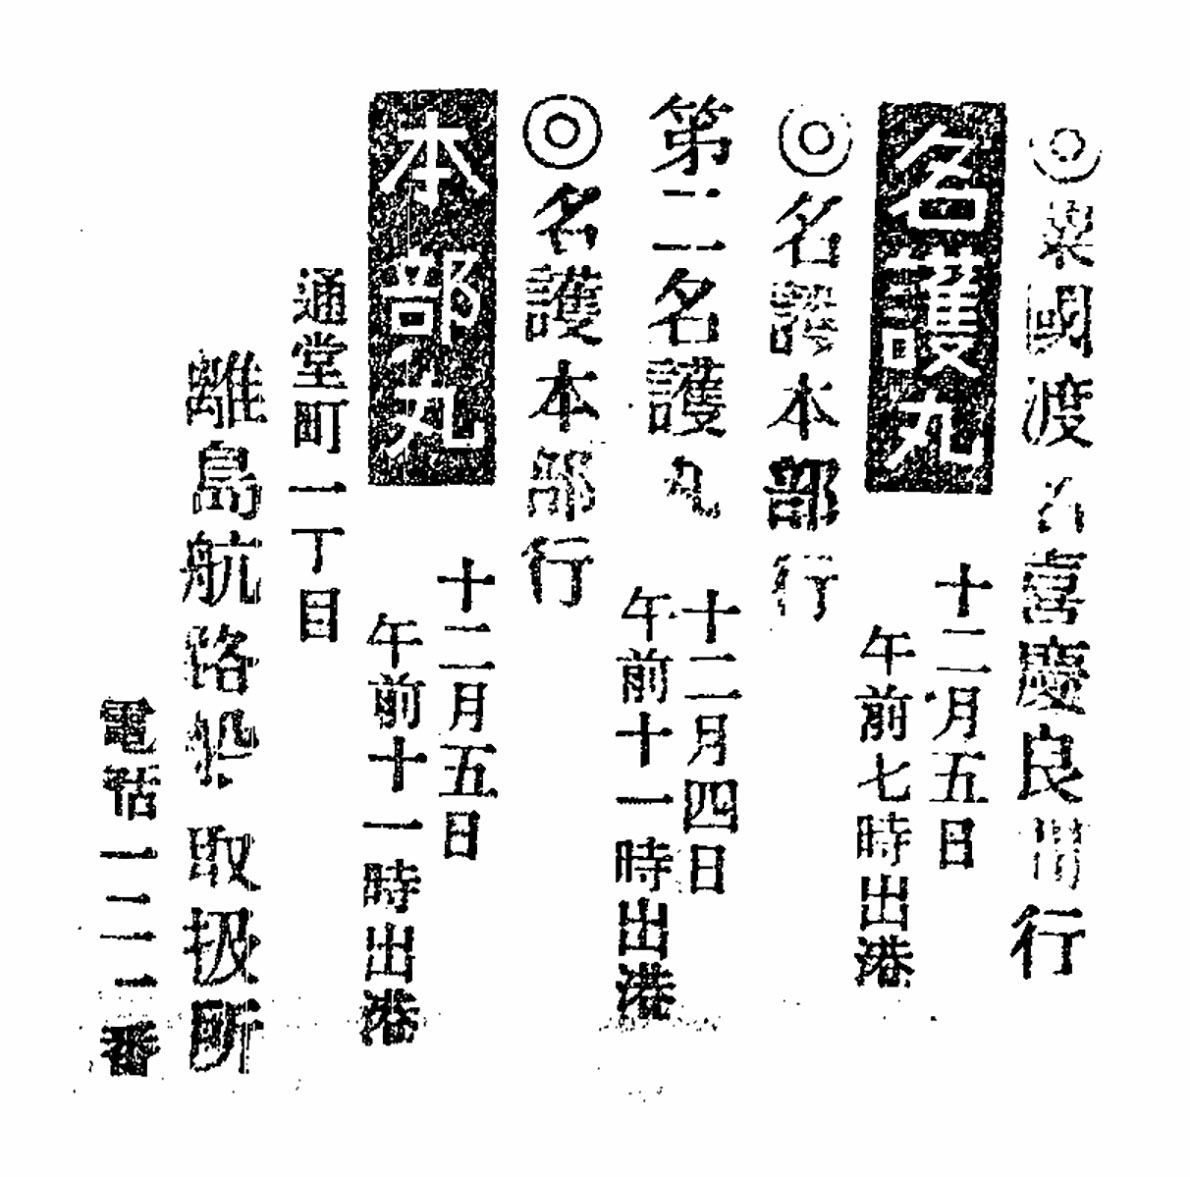 ◎粟國渡名喜慶良間行
名護丸
十二月五日
午前七時出港
◎名護本部行
第二名護丸
十二月四日
午前十一時出港
◎名護本部行
本部丸
十二月五日
午前十一時出港
通堂町一丁目
離島航路船取扱所
電話一二一番